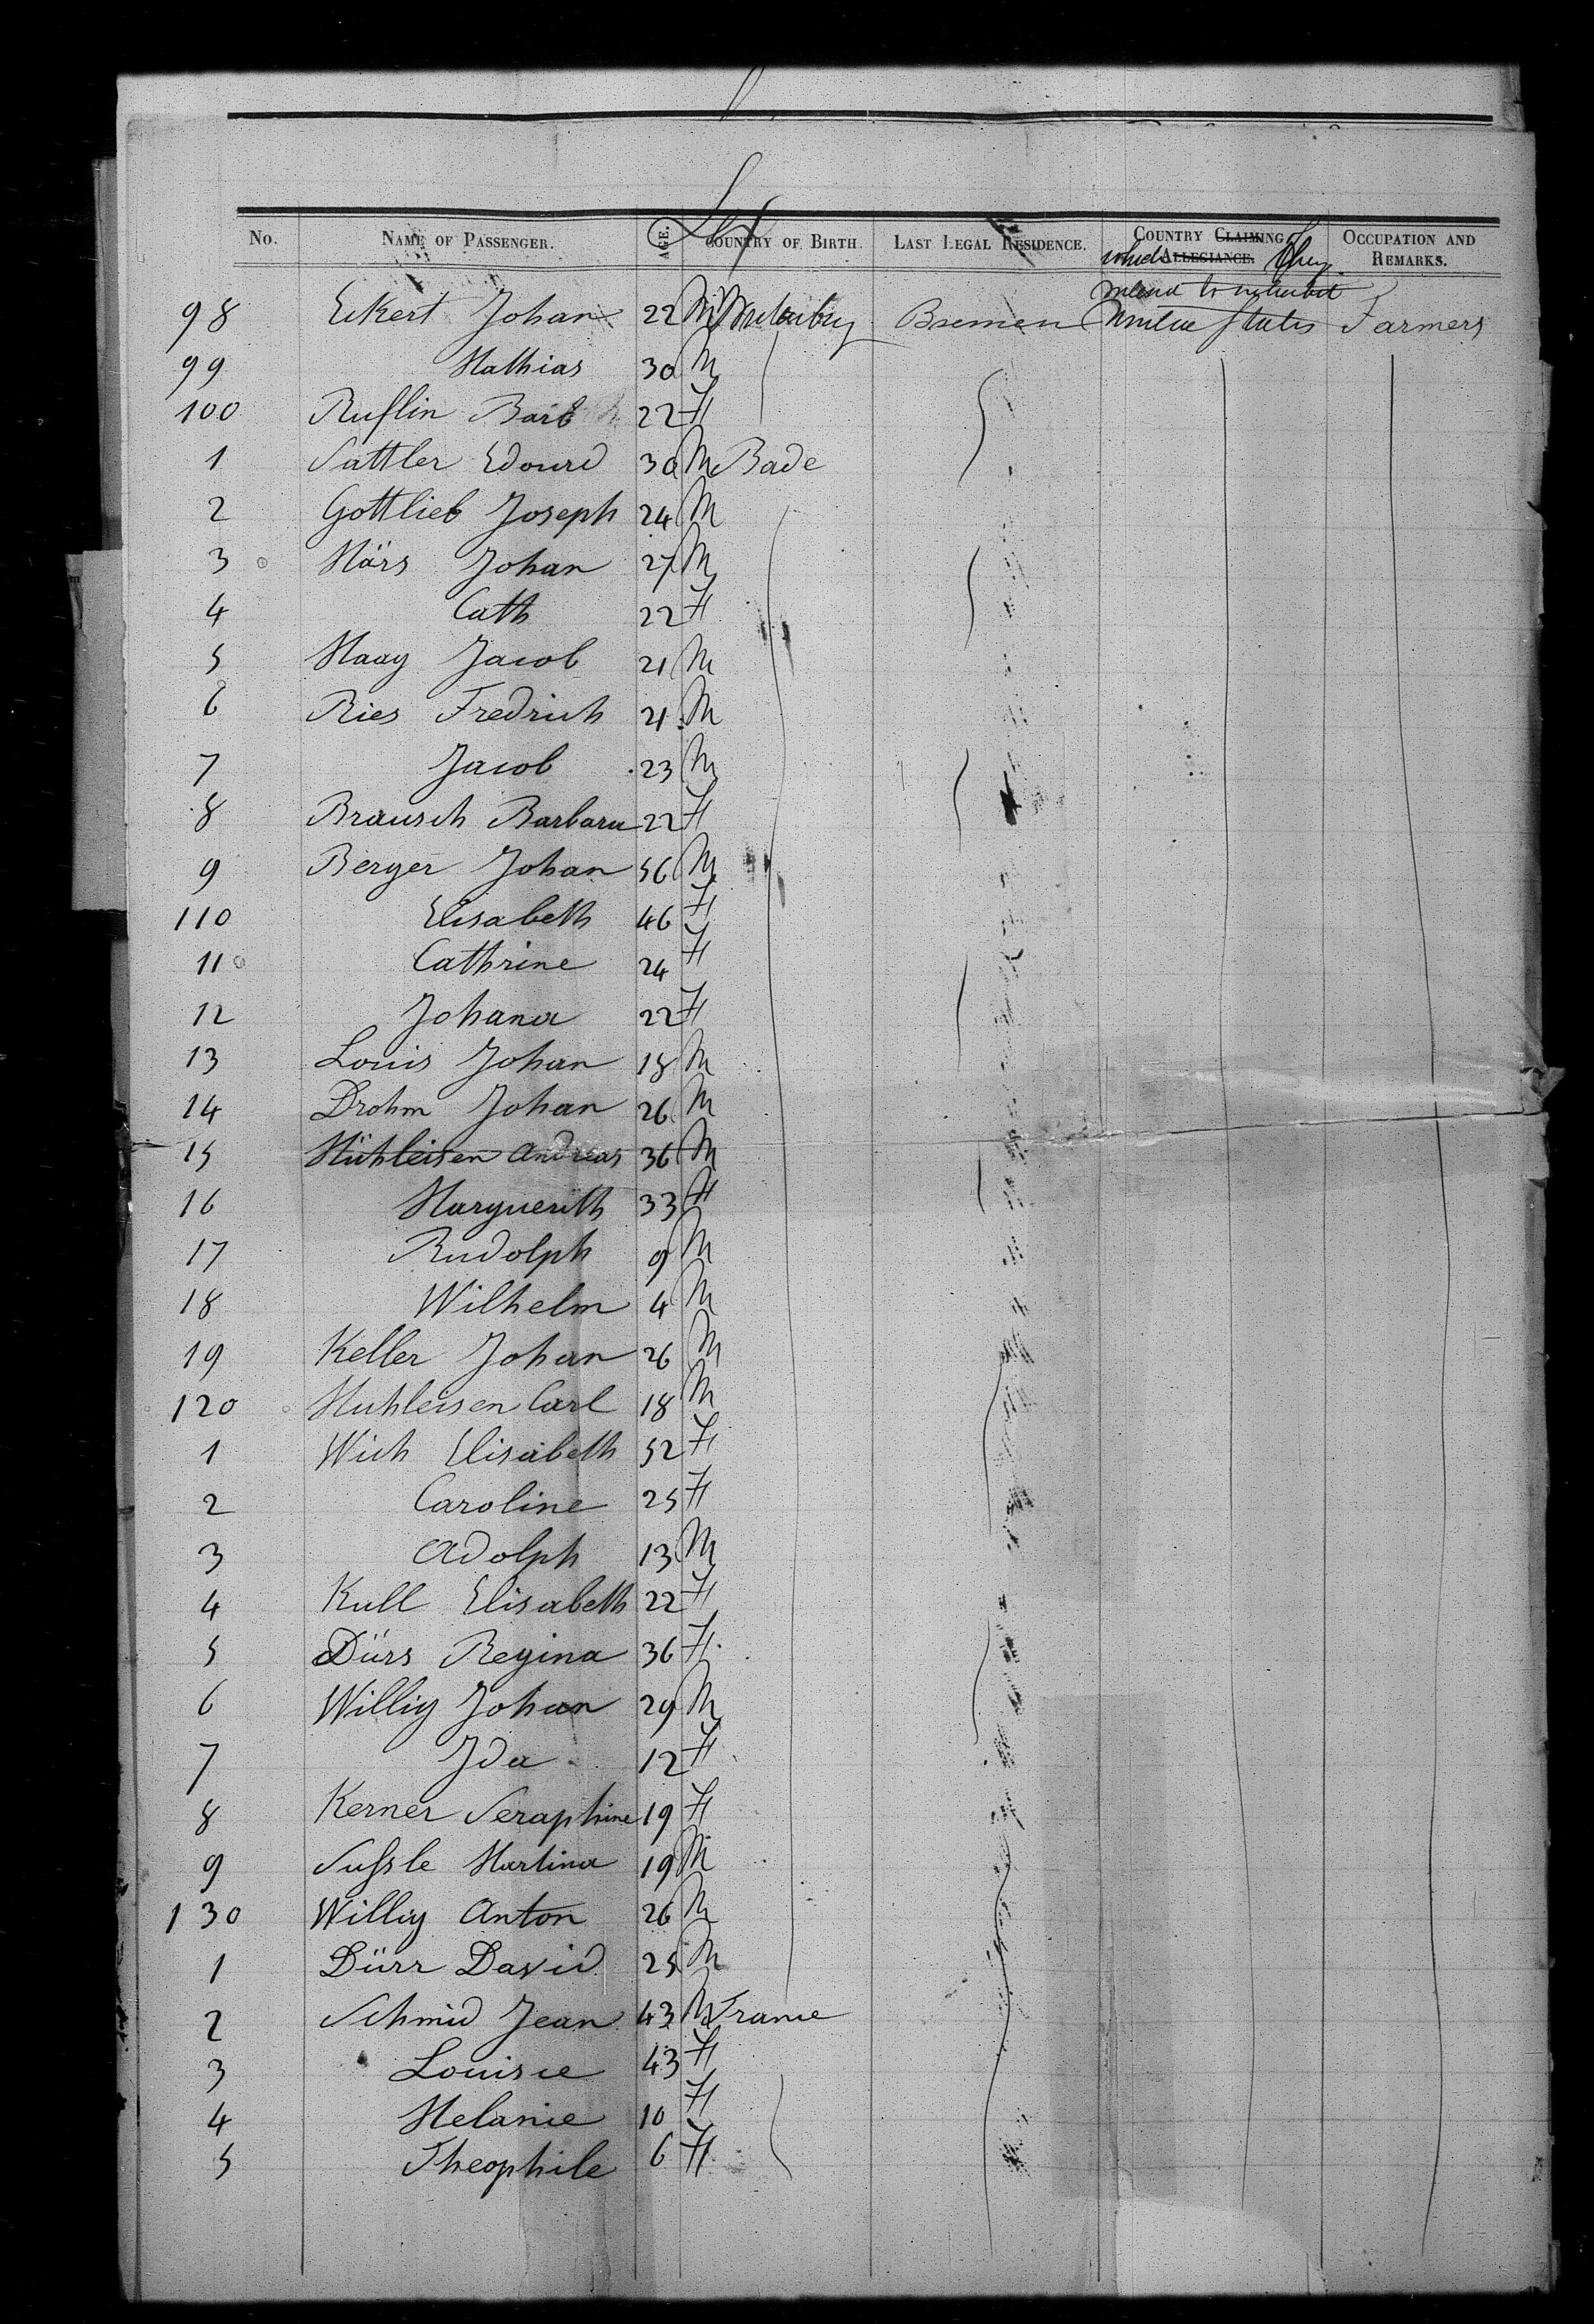 Sex
No. NAME OF PASSENGER. AGE. COUNTRY OF BIRTH. LAST LEGAL RESIDENCE. COUNTRY CLAIMING of OCCUPATION AND
which ALLEGIANCE. they REMARKS.
intend to inhabit
98 Eckert Johan 22 M Bremen United States Farmers
99 Mathias 30 M
100 Ruflin Barb 22 F
1 Sattler Edourd 30 M Bade
2 Gottlieb Joseph 24 M
3 Märs Johan 27 M
4 Cath 22 F
5 Haag Jacob 21 M
6 Ries Fredrich 21 M
7 Jacob 23 M
8 Brausch Barbara 22 F
9 Berger Johan 56 M
110 Elisabeth 46 F
11 Cathrine 24 F
12 Johana 22 F
13 Louis Johan 18 M
14 Drohm Johan 26 M
15 Mühleisen Andreas 36 M
16 Marguerith 33 F
17 Rudolph 9 M
18 Wilhelm 4 M
19 Keller Johan 26 M
120 Muhleisen Carl 18 M
1 Wich Elisabeth 52 F
2 Caroline 25 F
3 Adolph 13 M
4 Kull Elisabeth 22 F
5 Dürs Regina 36 F
6 Willig Johan 29 M
7 Ida 12 F
8 Kerner Seraphine 19 F
9 Sufsle Martina 19 M
130 Willig Anton 26 M
1 Dürr David 25 M
2 Schmid Jean 43 M France
3 Louise 43 F
4 Melanie 10 F
5 Theophile 6 F